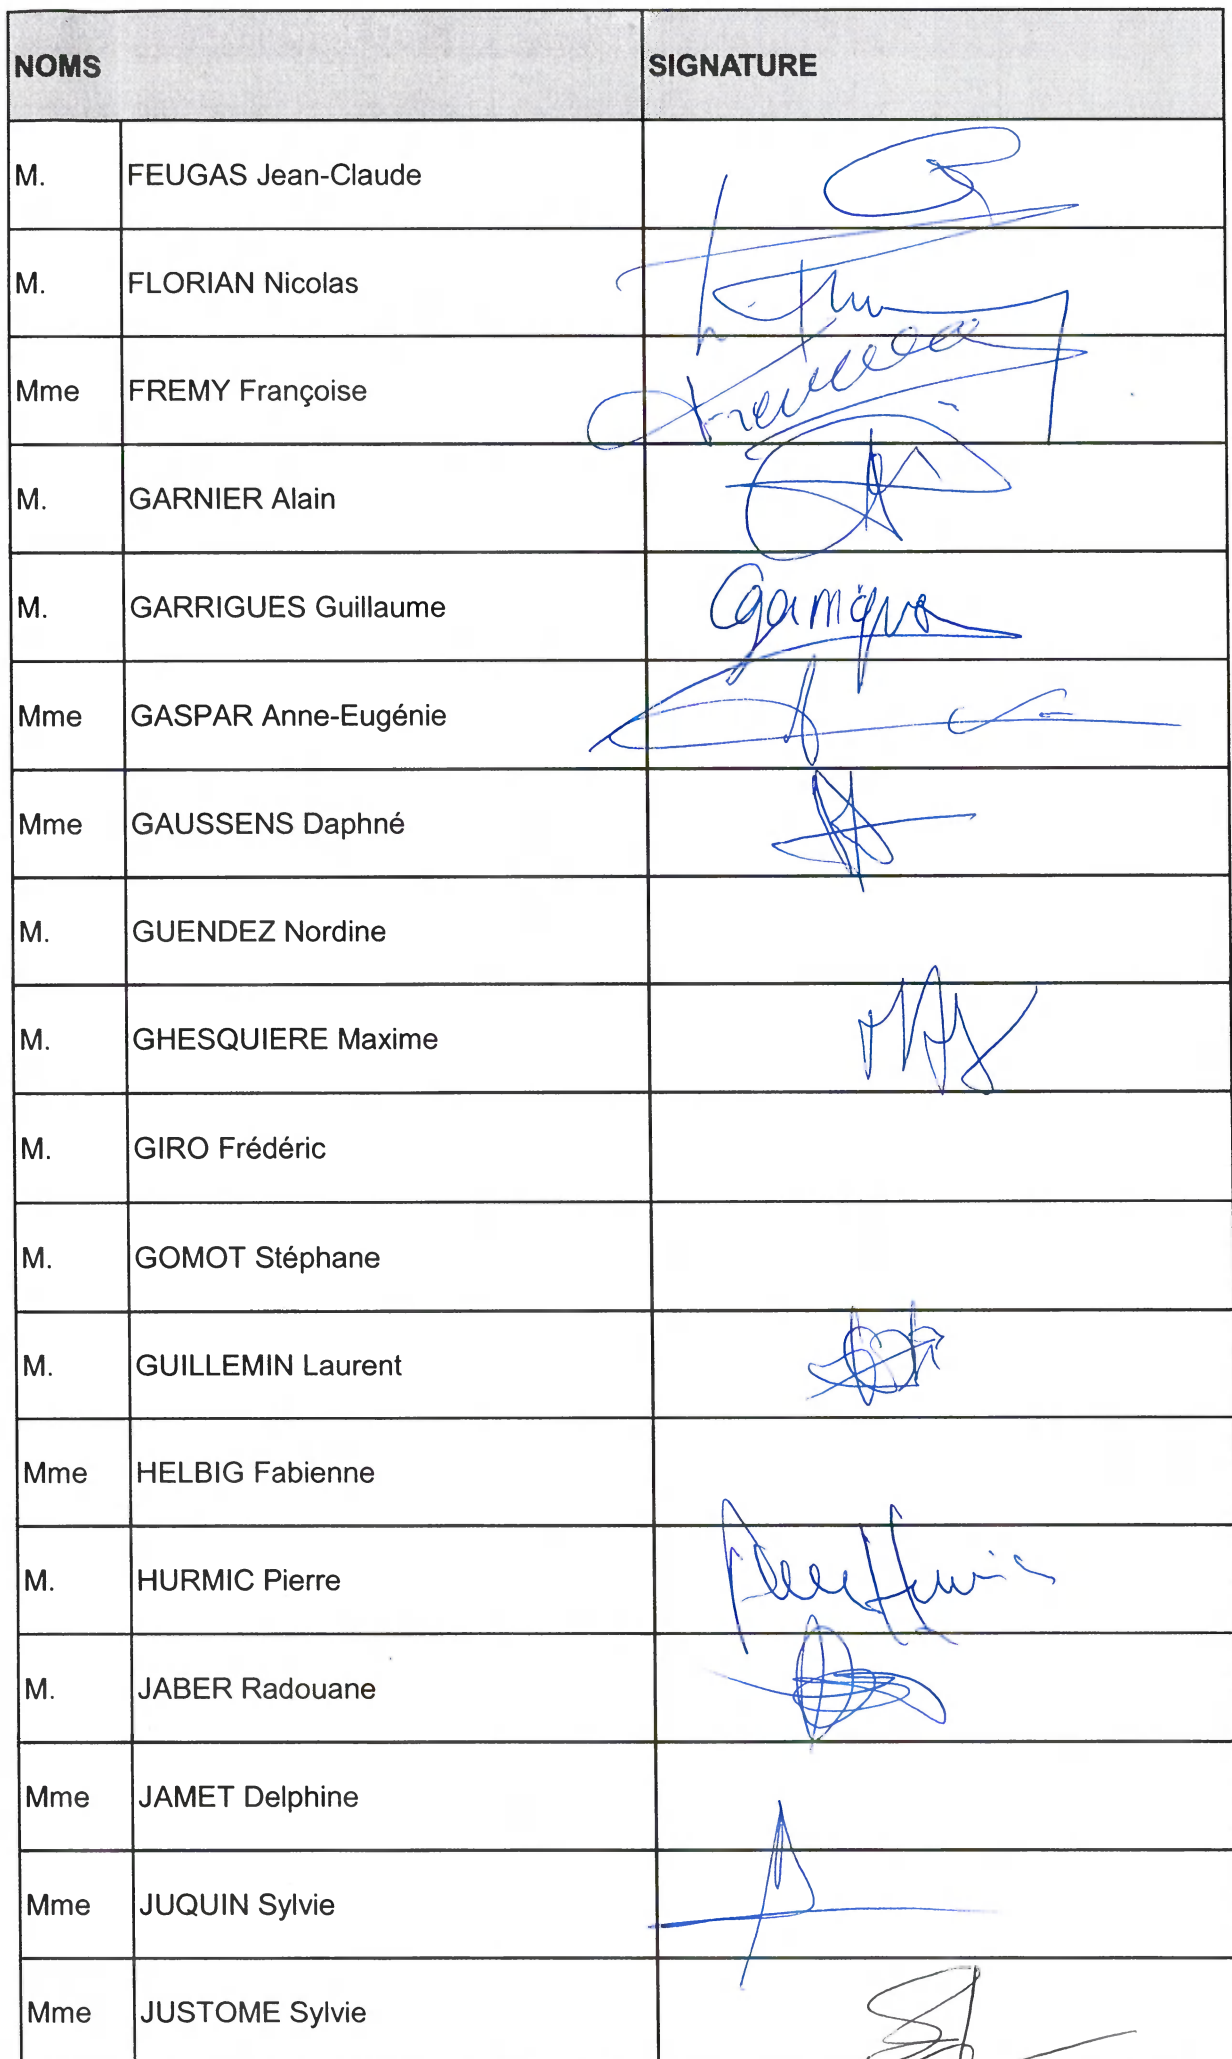 NOMS SIGNATURE
M. FEUGAS Jean-Claude
M. FLORIAN Nicolas
Mme FREMY Françoise
M. GARNIER Alain
M. GARRIGUES Guillaume
Mme GASPAR Anne-Eugénie
Mme GAUSSENS Daphné
M. GUENDEZ Nordine
M. GHESQUIERE Maxime
M. GIRO Frédéric
M. GOMOT Stéphane
M. GUILLEMIN Laurent
Mme HELBIG Fabienne
M. HURMIC Pierre
M. JABER Radouane
Mme JAMET Delphine
Mme JUQUIN Sylvie
Mme JUSTOME Sylvie